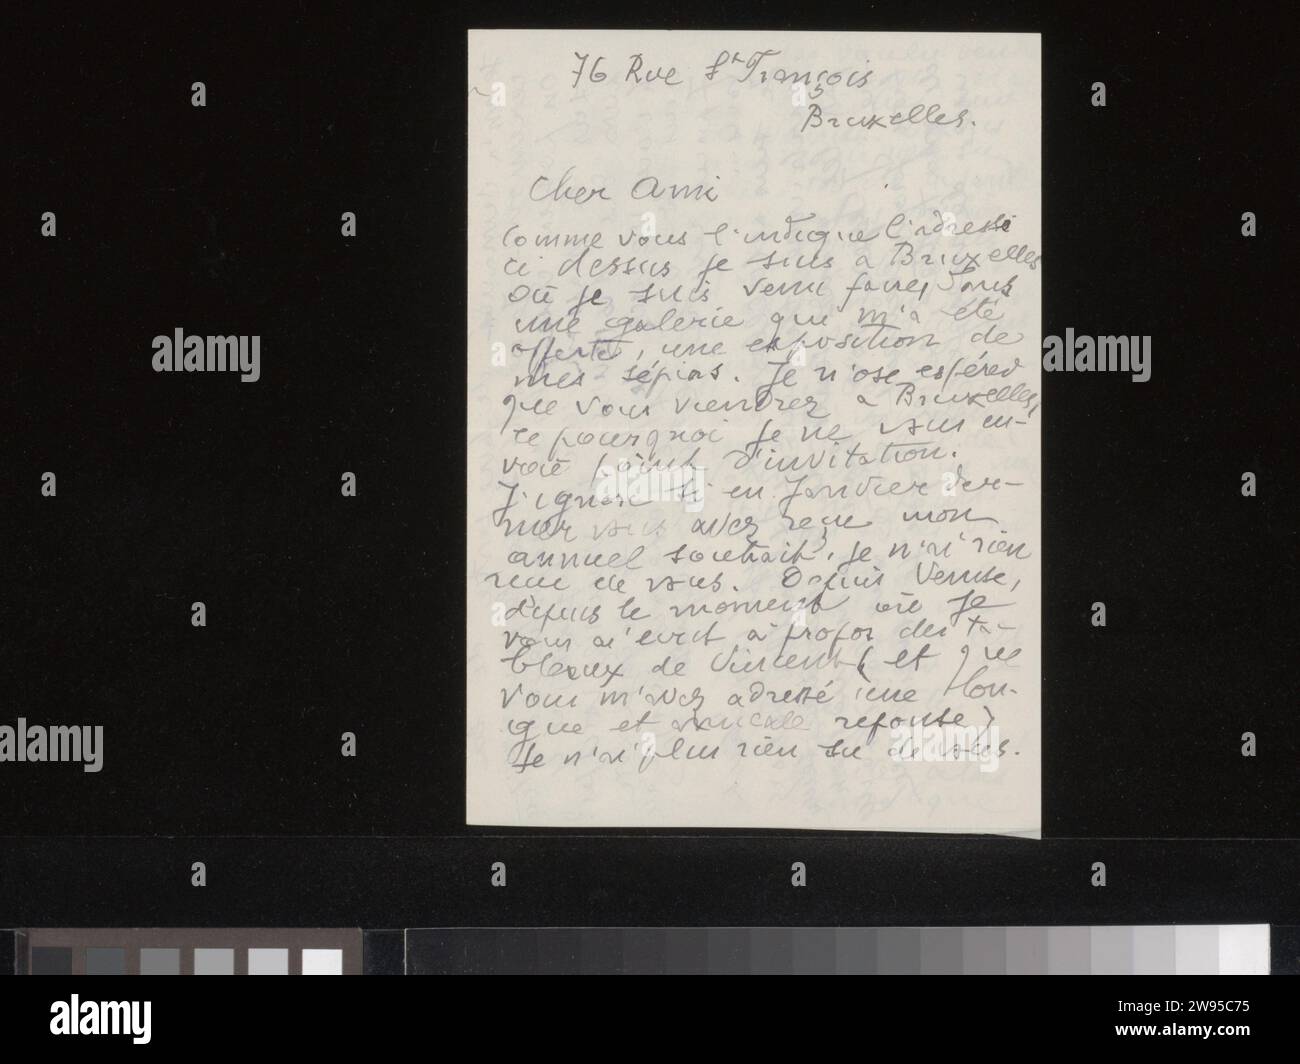 76 Rue St François
Bruxelles.
Cher Ami
Comme vous l'indique l'adresse
ci dessus je suis à Bruxelles
où je suis venu faire, dans
une galerie qui m'a été
offerte, une exposition de
mes sépias. Je n'ose espérer
que vous viendrez à Bruxelles,
pourquoi je ne vous en-
voie point d'invitation.
J'ignore si en Janvier der-
nier vous avez reçu mon
annuel souhait, je n'ai rien
reçu de vous. Depuis Venise,
depuis le moment où je
vous ai écrit à propos des ta-
bleaux de Vincent (et que
vous m'avez adressé une lon-
gue et amicale reponse)
Je n'ai plus rien su de vous.
alamy
alamy
alamy
alamy
alamy
a
a
a
a
a
a
a
a
a
a
a
a
a
a
a
a
alamy
Image ID: 2W95C75
www.alamy.com